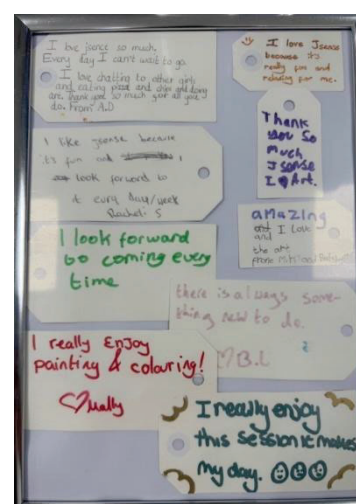 I love jsence so much.
Every day I can't wait to go.
I love chatting to other girls
and eating pizza and chips and doing
are. Thank you so much for all your
do. From A.D
I love Jsense
because its
really fun and
relaxing for me.
Thank
you so
much
Jsense
I Art.
I like jsense because
it's fun and
look forward to
it every day/week
Rachel. S
amazing
and I love
and
the art
from
I look forward
to coming every
time
there is always some-
thing new to do.
B.L
I really Enjoy
painting & colouring!
Mally
I really enjoy
this session it makes
my day.